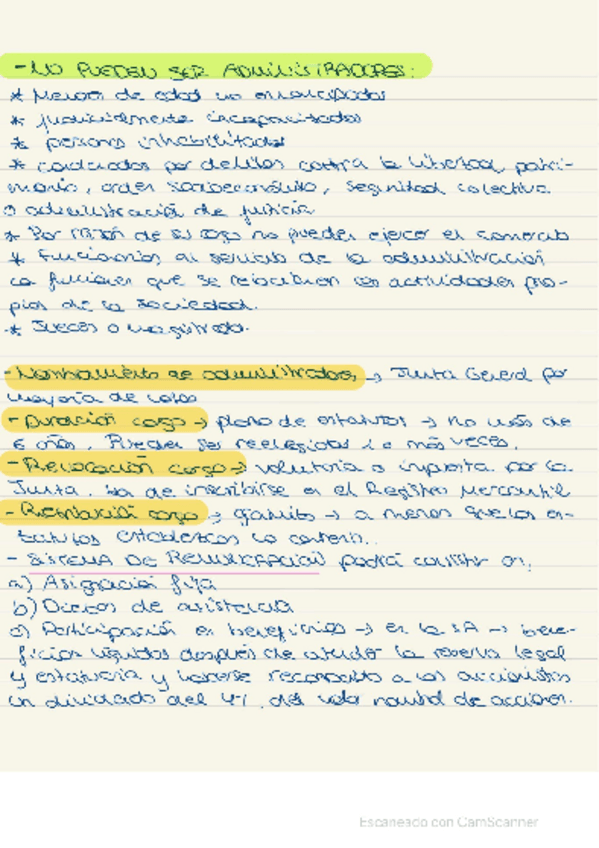 - NO PUEDEN SER ADMINISTRADORES:
* Menores de edad no emancipados
* judicialmente incapacitados
* personas inhabilitadas
* condenados por delitos contra la libertad, patri-
monio, orden socioeconómico, seguridad colectiva
o administración de justicia
* Por razón de su cargo no pueden ejercer el comercio
* Funcionarios al servicio de la administración
con funciones que se relacionen con actividades pro-
pias de la sociedad.
* Jueces o magistrados.
- Nombramiento de administradores → Junta General por
mayoría de votos
- Duración cargo → plazo de estatutos → no más de
6 años. Pueden ser reelegidos 1 o más veces.
- Revocación cargo → voluntaria o impuesta por la
Junta. Ha de inscribirse en el Registro Mercantil
- Retribución cargo → gratuito → a menos que los es-
tatutos establezcan lo contrario.
- SISTEMA DE REMUNERACIÓN podrá consistir en:
a) Asignación fija
b) Dietas de asistencia
c) Participación en beneficios → en la SA → bene-
ficios líquidos después de atender la reserva legal
y estatutaria y haberse reconocido a los accionistas
un dividendo del 4% del valor nominal de acciones.
Escaneado con CamScanner